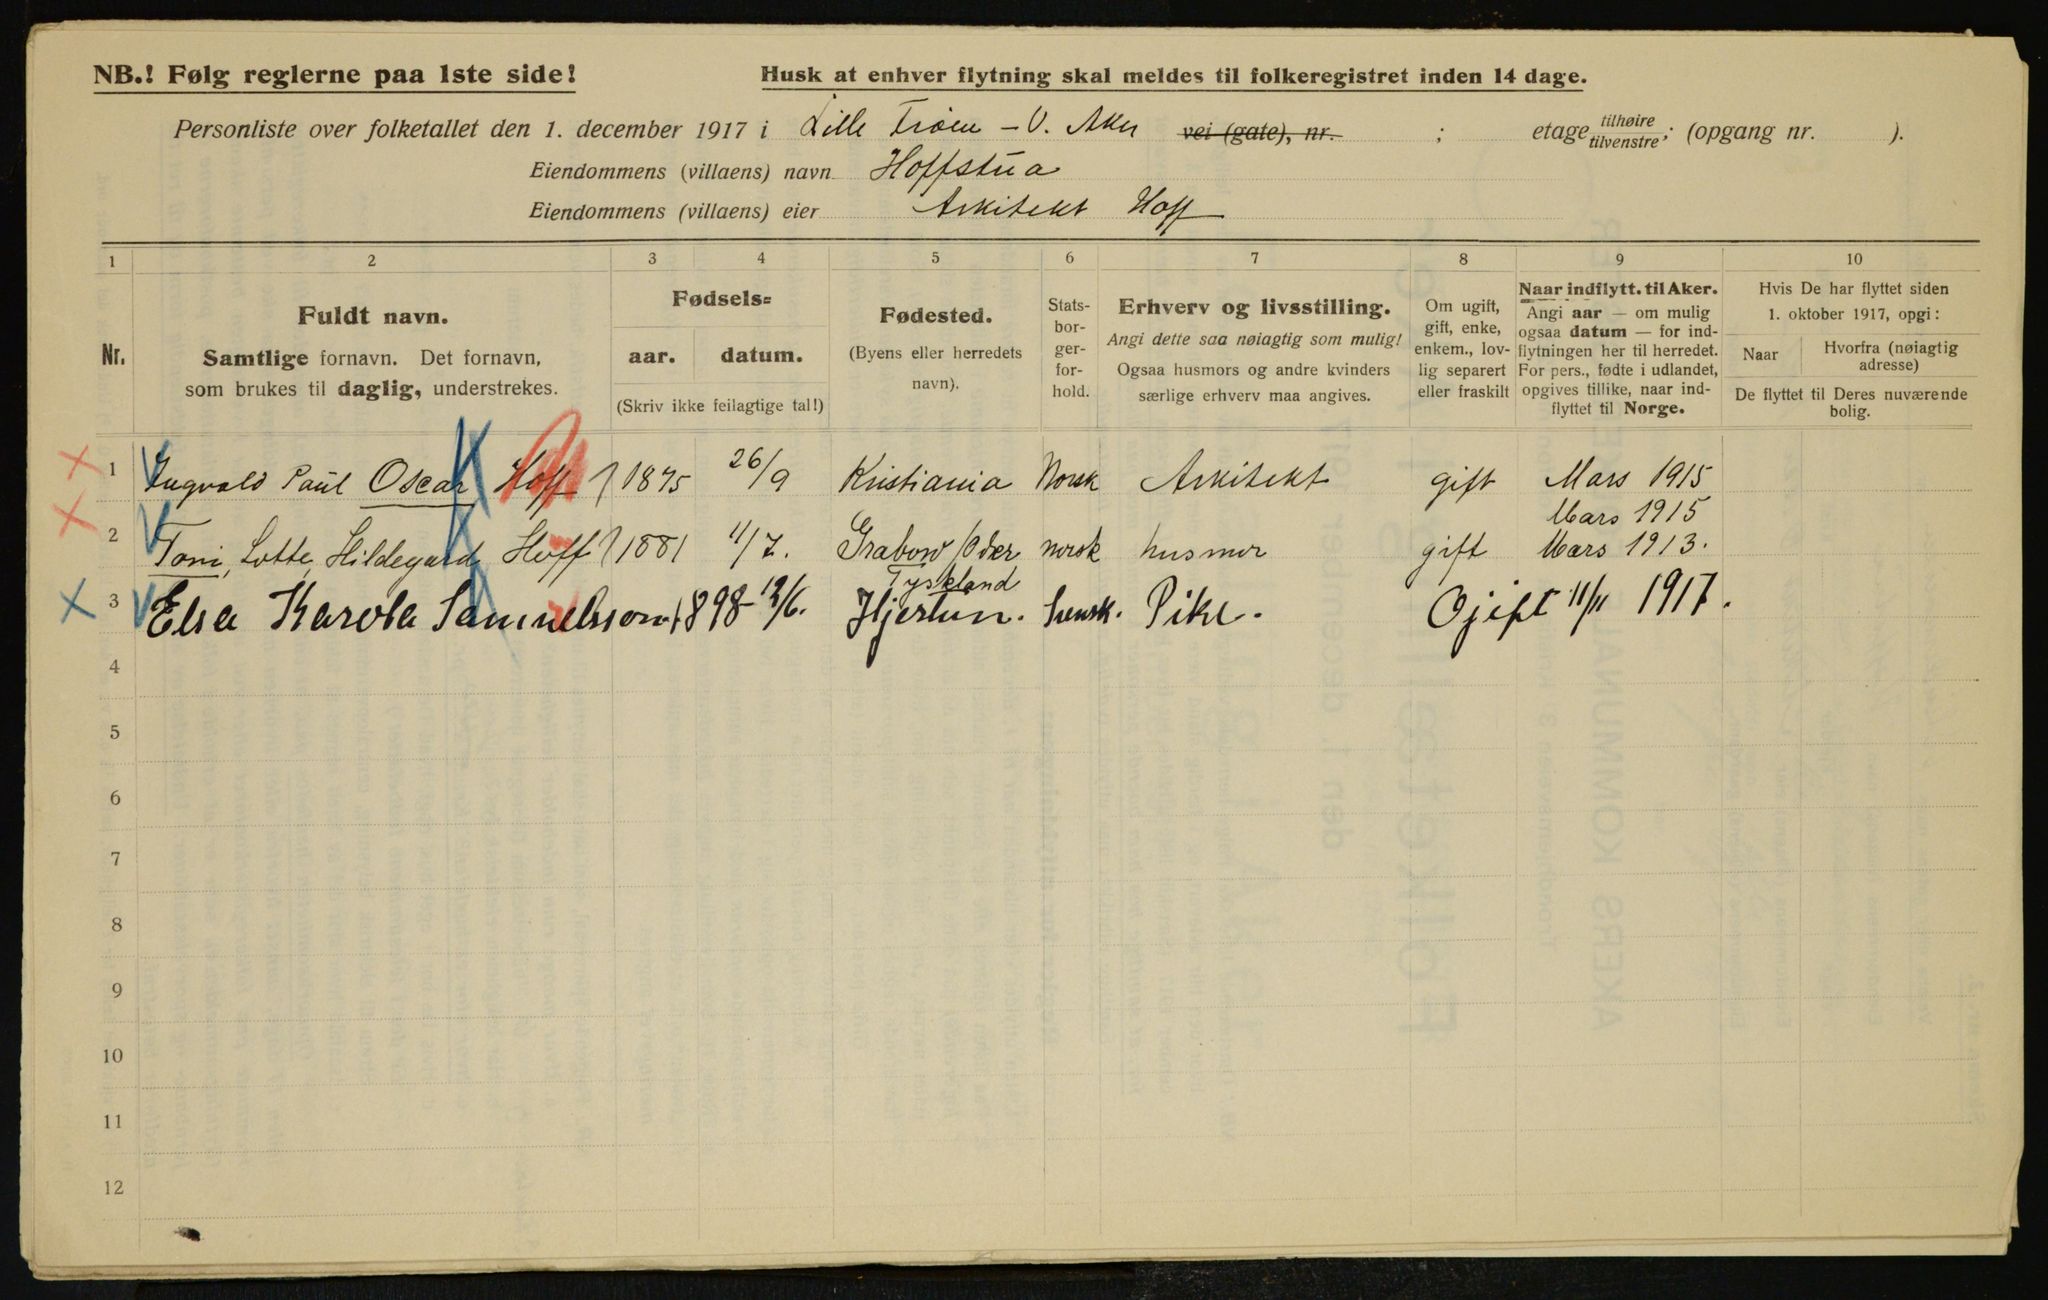 NB.! Følg reglerne paa 1ste side!
Husk at enhver flytning skal meldes til folkeregistret inden 14 dage.
Personliste over folketallet den 1. december 1917 i Lille Frøen – V. Aker vei (gate), nr. ; etage tilhøire tilvenstre; (opgang nr. ).
Eiendommens (villaens) navn Hoffstua
Eiendommens (villaens) eier Arkitekt Hoff
1 2 3 4 5 6 7 8 9 10
Nr.
Fuldt navn.
Samtlige fornavn. Det fornavn, som brukes til daglig, understrekes.
Fødsels=
aar. datum.
(Skriv ikke feilagtige tal!)
Fødested.
(Byens eller herredets navn).
Stats-
bor-
ger-
for-
hold.
Erhverv og livsstilling.
Angi dette saa nøiagtig som mulig!
Ogsaa husmors og andre kvinders
særlige erhverv maa angives.
Om ugift,
gift, enke,
enkem., lov-
lig separert
eller fraskilt
Naar indflytt. til Aker.
Angi aar — om mulig
ogsaa datum — for ind-
flytningen her til herredet.
For pers., fødte i udlandet,
opgives tillike, naar ind-
flyttet til Norge.
Hvis De har flyttet siden
1. oktober 1917, opgi:
Naar
Hvorfra (nøiagtig adresse)
De flyttet til Deres nuværende
bolig.
1 Ingvald Paul Oscar Hoff 1875 26/9 Kristiania Norsk Arkitekt gift Mars 1915
Mars 1915
2 Toni, Lotte, Hildegard Hoff 1881 11/7. Grabow /Oder norsk husmor gift Mars 1913.
Tyskland
3 Elsa Karola Samuelsson 1898 12/6. Hjertun. Svensk. Pike. Ogift 11/11 1917.
4
5
6
7
8
9
10
11
12